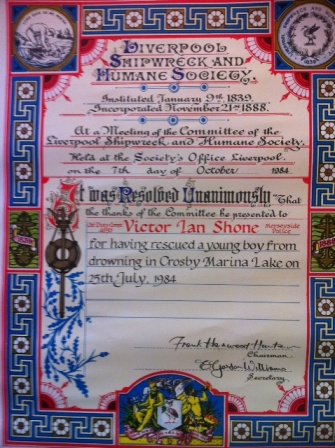 Liverpool
Shipwreck and
Humane Society.
Instituted January 9th, 1839.
Incorporated November 21st 1888.
At a Meeting of the Committee of the
Liverpool Shipwreck and Humane Society,
Held at the Society's Office Liverpool.
on the 7th day of October 1984
It was Resolved Unanimously That
the thanks of the Committee be presented to
Victor Ian Shone Merseyside Police
for having rescued a young boy from
drowning in Crosby Marina Lake on
25th July, 1984
Chairman.
Secretary.